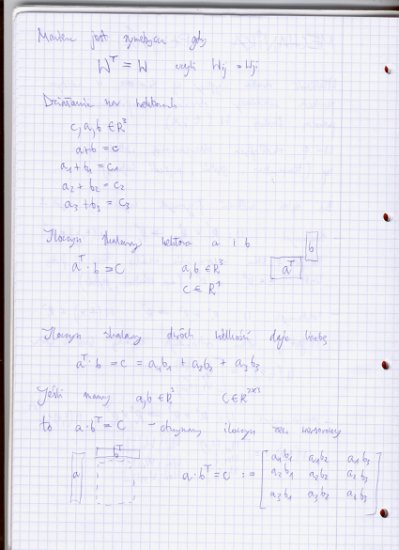 Macierz jest symetryczna gdy
W^T = W czyli Wij = Wji
Działania na wektorach
c, a, b ∈ R^3
a+b = c
a1 + b1 = c1
a2 + b2 = c2
a3 + b3 = c3
Iloczyn skalarny wektora a i b
b
a^T · b = C a,b ∈ R^3 a^T
C ∈ R^1
Iloczyn skalarny dwóch daje liczbę
a^T · b = c = a1b1 + a2b2 + a3b3
Jeśli mamy a,b ∈ R^3 C ∈ R^3×3
to a · b^T = C – otrzymamy iloczyn
b^T
a a · b^T = c := [ a1b1 a1b2 a1b3
a2b1 a2b2 a2b3
a3b1 a3b2 a3b3 ]